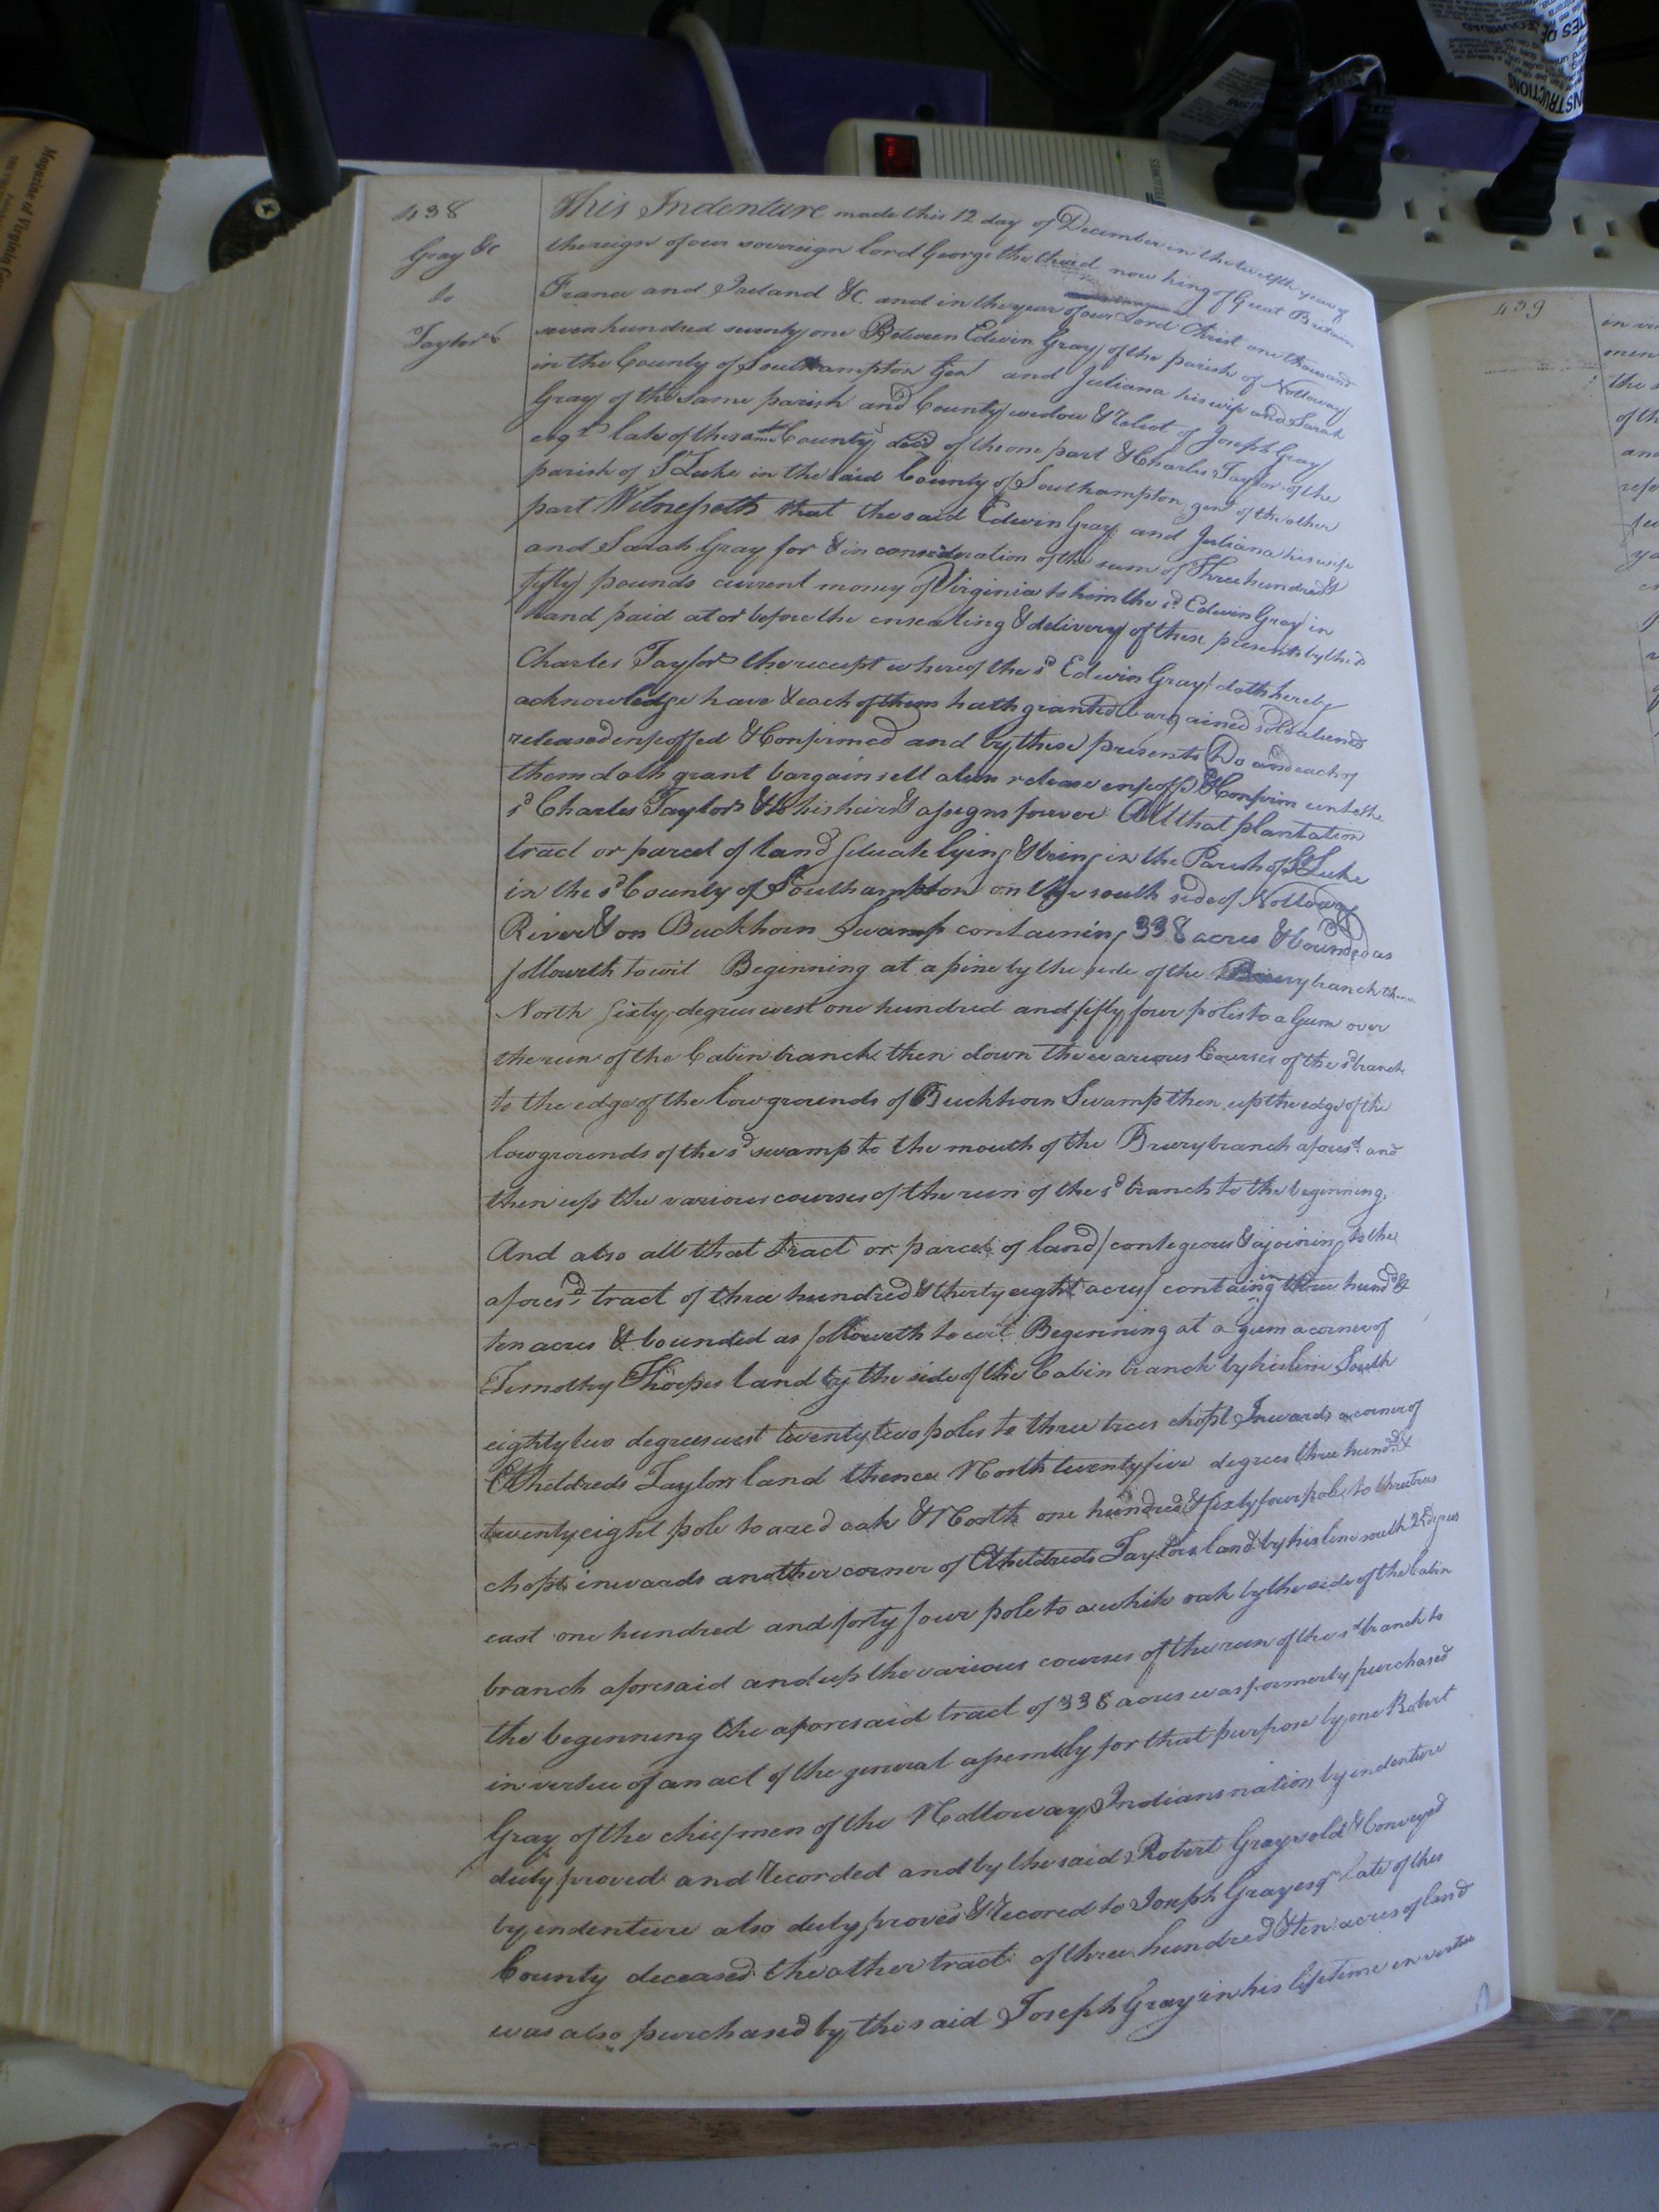 438
Gray &c
to
Taylor
This Indenture made this 12 day of December in the twelfth year of
the reign of our sovereign lord George the third now king of Great Britain
France and Ireland &C and in the year of our Lord Christ one thousand
seven hundred seventy one Between Edwin Gray of the parish of Nottoway
in the County of Southampton Gen and Juliana his wife and Sarah
Gray of the same parish and County widow & Relict of Joseph Gray
esqr late of the same County decd of the one part & Charles Taylor of the
parish of St Luke in the said County of Southampton gent of the other
part Witnesseth that the said Edwin Gray and Juliana his wife
and Sarah Gray for & in consideration of the sum of Three hundred &
fifty pounds current money of Virginia to him the sd Edwin Gray in
hand paid at or before the ensealing & delivery of these presents by the sd
Charles Taylor the receipt whereof the sd Edwin Gray doth hereby
acknowledge have & each of them hath granted bargained sold aliened
released enfeoffed & Confirmed and by these presents Do and each of
them doth grant bargain sell alien release enfeoff & Confirm unto the
sd Charles Taylor & to his heirs & assigns forever All that plantation
tract or parcel of land situate lying & being in the Parish of St Luke
in the sd County of Southampton on the south side of Nottoway
River & on Buckhorn Swamp containing 338 acres & bounded as
followeth to wit Beginning at a pine by the side of the Briery branch then
North sixty degrees west one hundred and fifty four poles to a Gum over
the run of the Cabin branch then down the various Courses of the sd branch
to the edge of the low grounds of Buckhorn Swamp then up the edge of the
low grounds of the sd swamp to the mouth of the Briery branch aforesd and
then up the various courses of the run of the sd branch to the beginning.
And also all that tract or parcel of land contegeous & ajoining to the
aforesd tract of three hundred & thirty eight acres containing three hundd &
ten acres & bounded as followeth to wit Beginning at a gum a corner of
Timothy Thorpes land by the side of the Cabin branch by his line South
eighty two degrees west twenty two poles to three trees chopt Inwards a corner of
Etheldreds Taylors land thence North twenty five degrees three hundd &
twenty eight pole to a red oak & North one hundred & sixty four pole to three trees
chopt inwards another corner of Etheldreds Taylors land by his line south 25 degrees
east one hundred and forty four pole to a white oak by the side of the Cabin
branch aforesaid and up the various courses of the run of the sd branch to
the beginning the aforesaid tract of 338 acres was formerly purchased
in virtue of an act of the general assembly for that purpose by one Robert
Gray of the chiefmen of the Nottoway Indians nation by indenture
duly proved and Recorded and by the said Robert Gray sold & Conveyed
by indenture also duly proved & Recored to Joseph Gray esqr late of this
County deceased the other tract of three hundred & ten acres of land
was also purchased by the said Joseph Gray in his lifetime in virtue
439